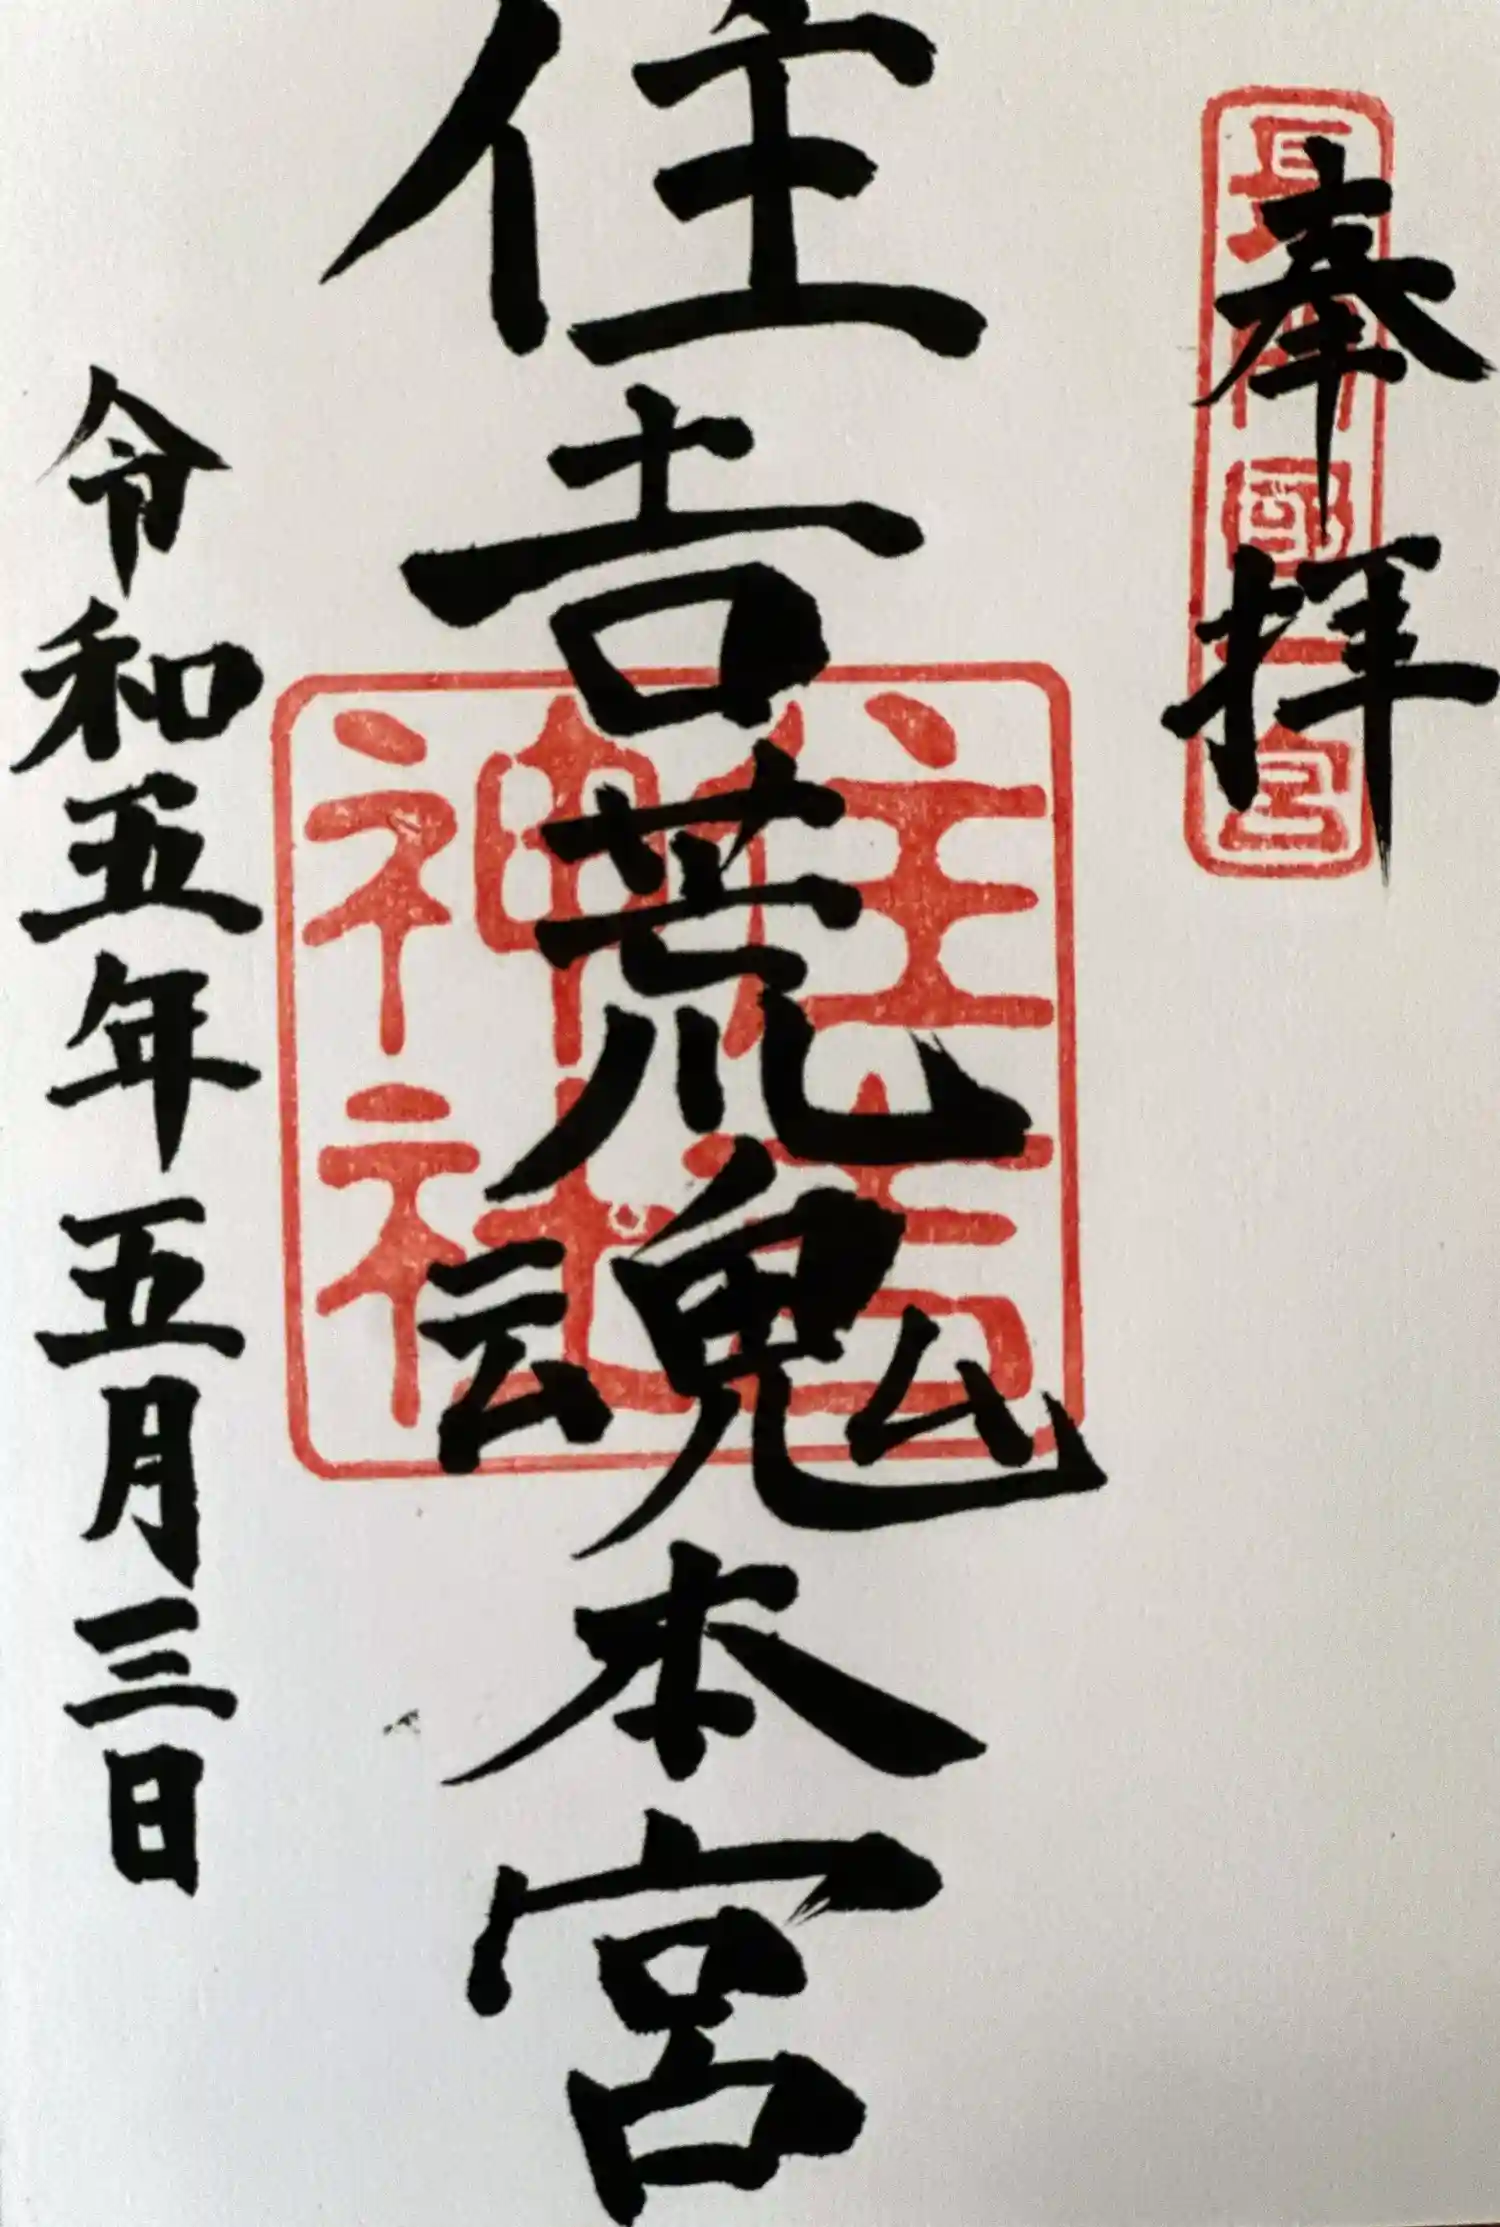 奉拝
長門國一宮
住吉荒魂本宮
住吉
神社
令和五年五月三日